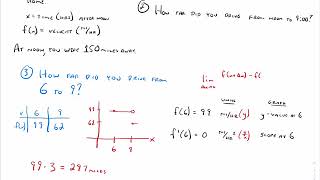 Home.
x = Time (hrs) after noon
f(x) = velocity (mi/hr)
At noon, you were 150 miles away.
② How far did you drive from noon to 9:00?
③ How far did you drive from
6 to 9?
x 6 9
f(x) 99 62
99
62
6 9
99 · 3 = 297 miles
lim f(x+Δx) - f(
Units Graph
f(6) = 99 mi/hr (y) y-value at 6
f'(6) = 0 mi/hr² slope at 6